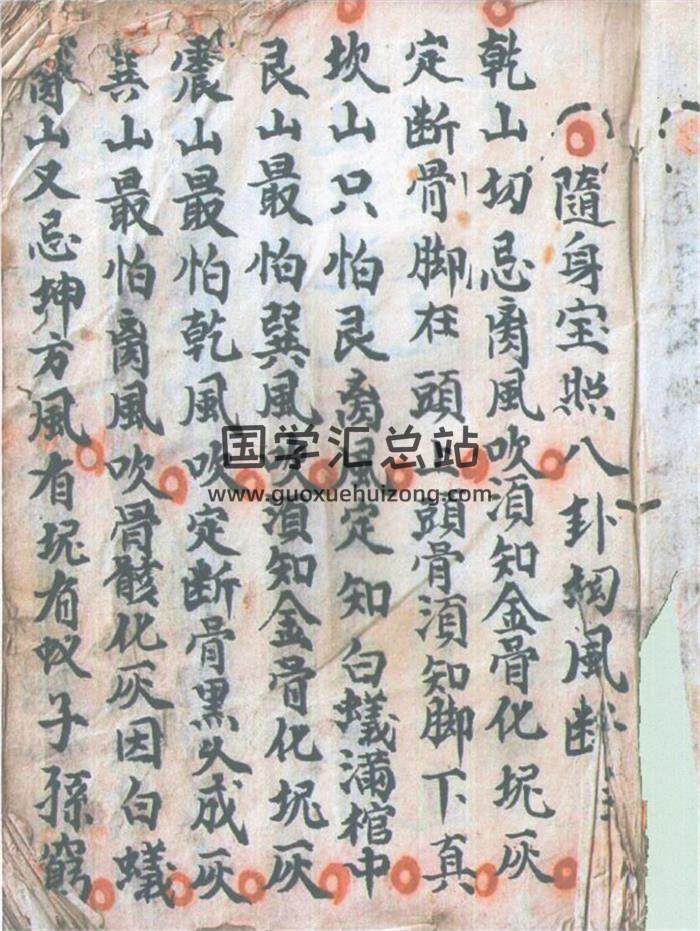 隨身宝照八卦風断
乾山切忌离風吹須知金骨化坭灰
定断骨脚在頭上頭骨須知脚下真
坎山只怕艮离風定知白蟻滿棺中
艮山最怕巽風吹須知金骨化坭灰
震山最怕乾風吹定断骨黑成灰
巽山最怕离風吹骨骸化灰因白蟻
离山又忌坤方風有坭有蚁子孫窮
国学汇总站
www.guoxuehuizong.com